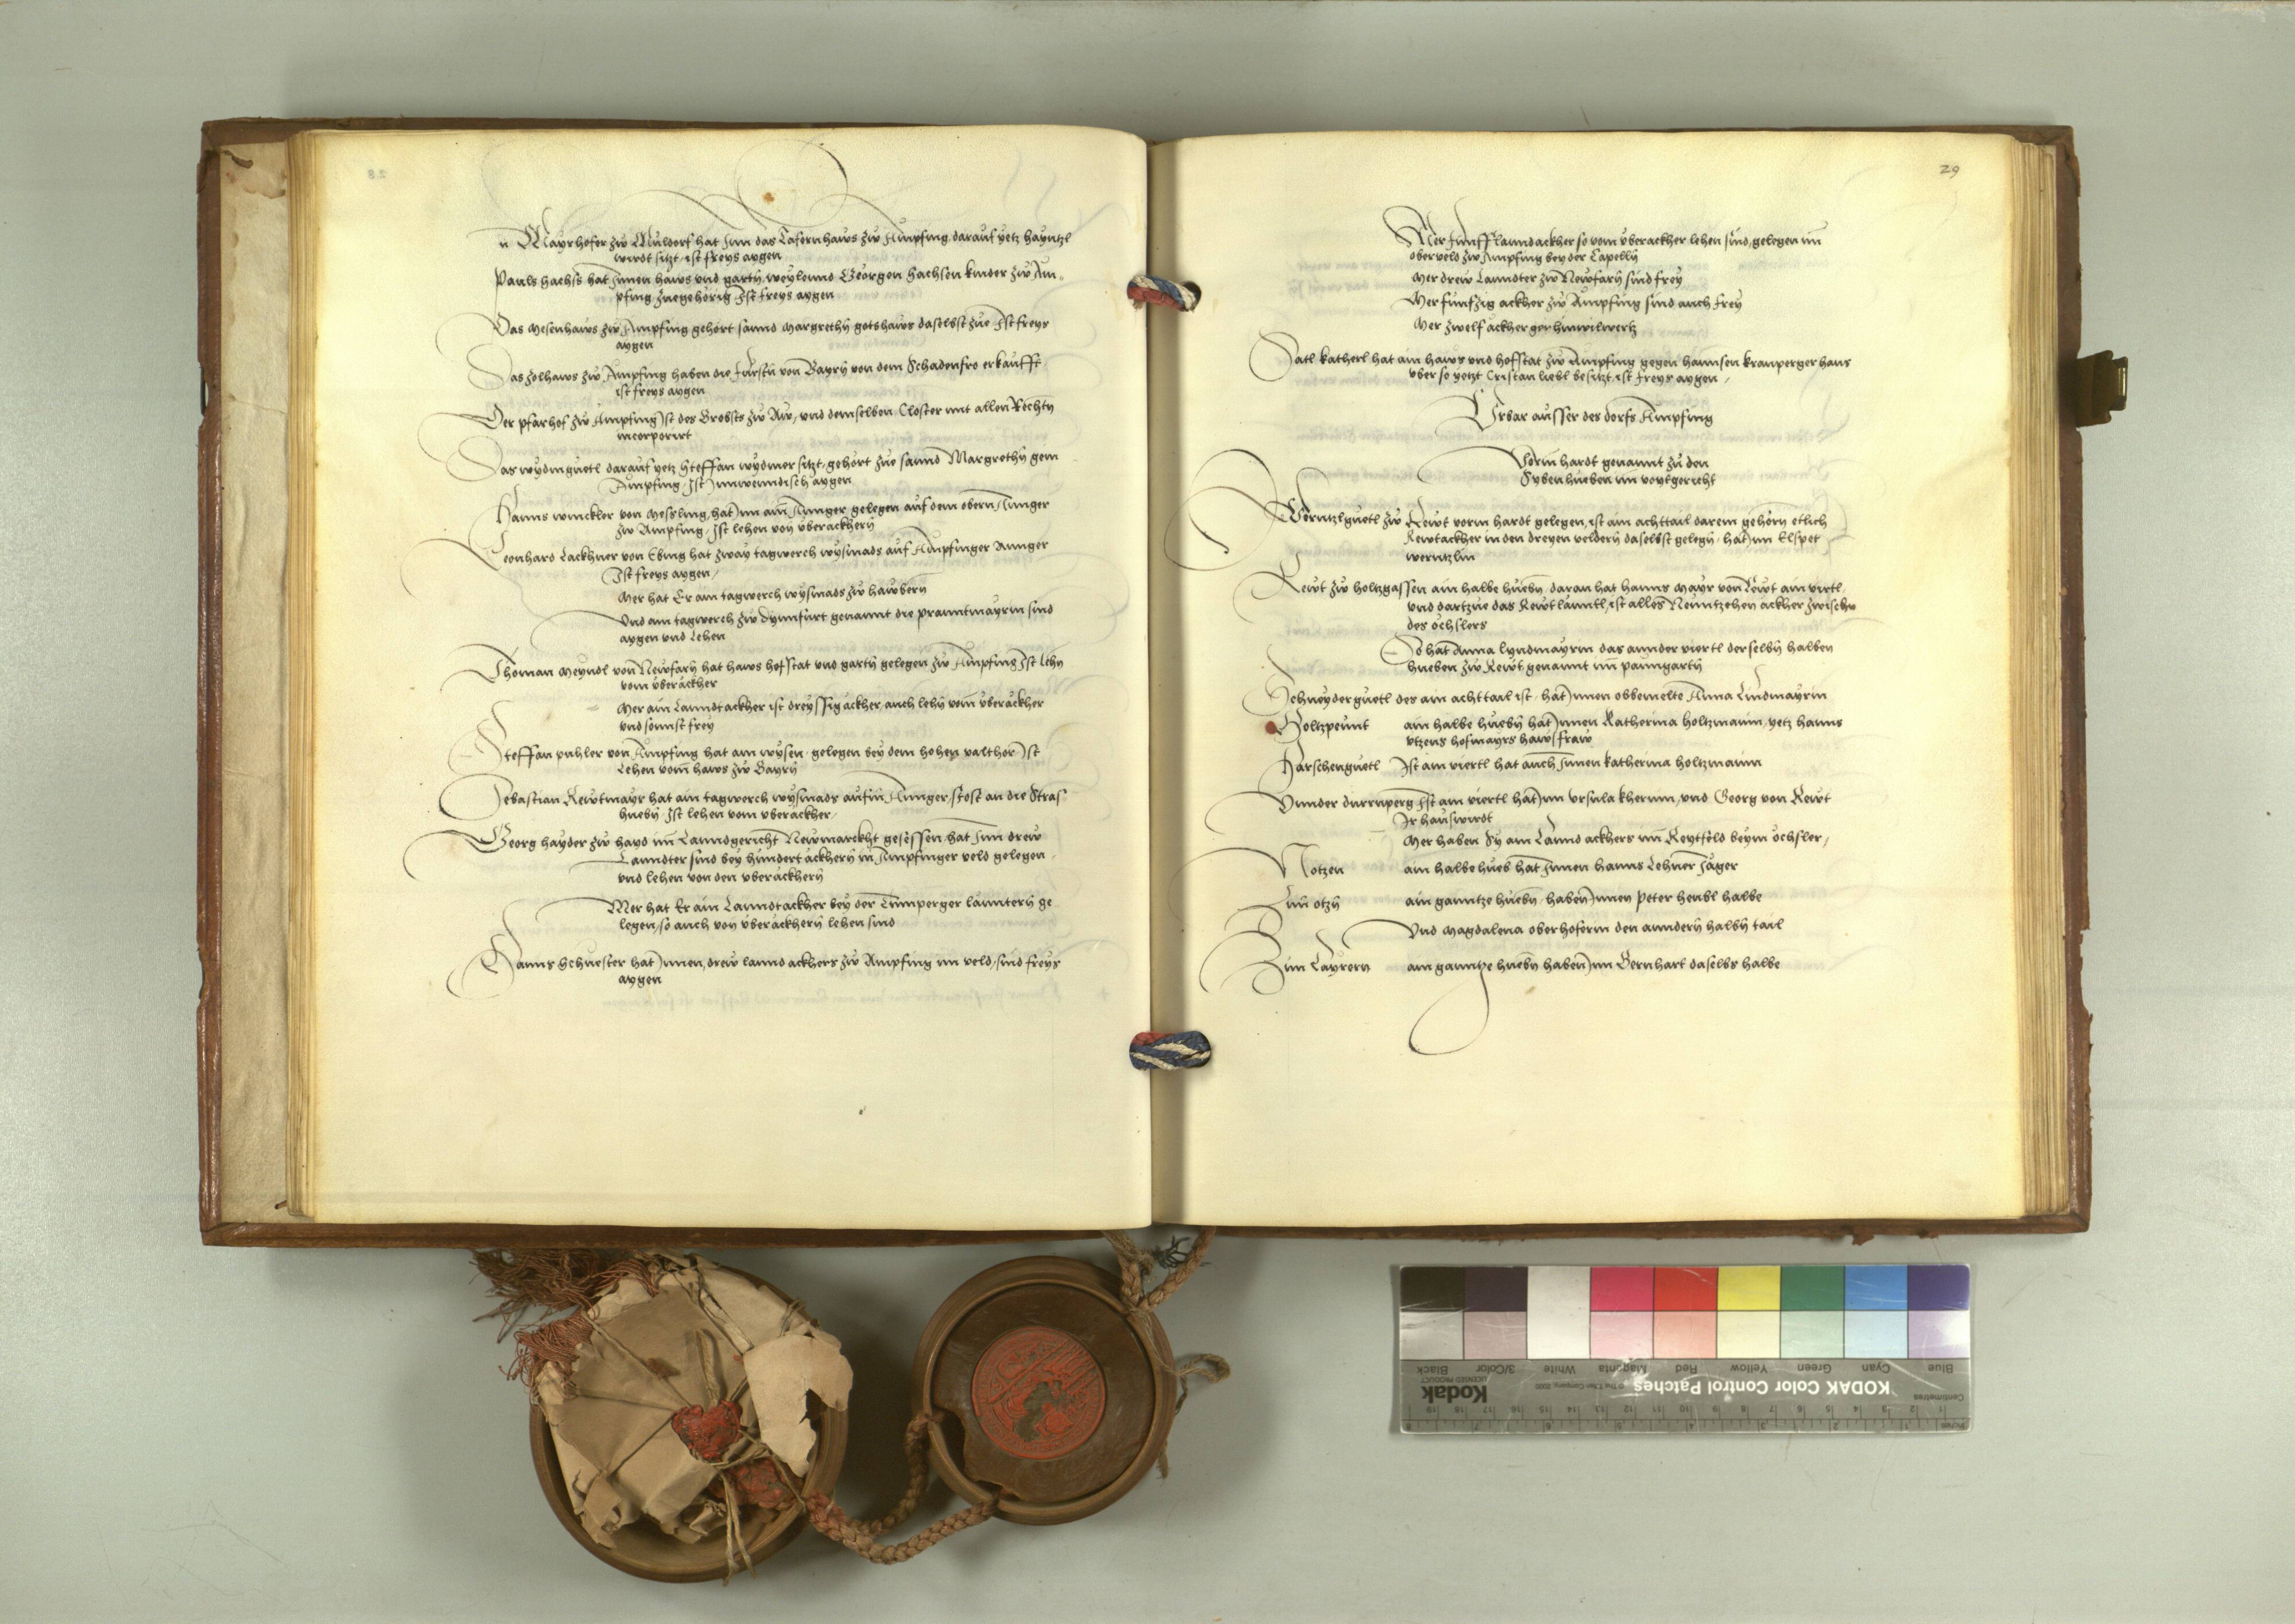 28
n Mayrhofer zw Muldorf hat Inn das Tafernhaws zw Ampfing, darauf yetz hayntzl
wirdt sitzt, ist freys aygen
Pauls hachs hat Innen haws vnd gartn, weylennd Georgen hachsen kinder zw Am
pfing zuegehorig Ist freys aygen
Das mesenhaws zw Ampfing gehort sannd Margrethn gotshaws daselbst zue Ist freys
aygen
Das zolhaws zw Ampfing haben die Fursten von Bayrn von dem Schadenfro erkaufft
ist freys aygen
Der pfarhof zw Ampfing Ist des Brobsts zw Aw, vnd demselben Closter mit allen Rechtn
incorporirt
Das wydmguetl darauf yetz Steffan wydmer sitzt, gehort zue sannd Margrethn gem
Ampfing, Ist Innwenndisch aygen
Hanns winckler von Messling, hat Inn ain Annger gelegen auf dem obern Annger
zw Ampfing, Ist lehen von vberackhern
Leonhard Lackhner von Ebing hat zway tagwerch wysmads auf Ampfinger Annger
Ist freys aygen,
Mer hat Er ain tagwerch wysmads zw hawbern
Vnd ain tagwerch zw Dynnfurt genannt die pranntmayrin sind
aygen vnd Lehen
Thoman Meyndl von Newfarn hat haws hofstat vnd gartn gelegen zw Ampfing Ist lehn
vom vberackher
Mer ain Lanndtackher ist dreyssig ackher, auch lehn vom vberackher
vnd sonnst frey
Steffan puhler von Ampfing hat ain wysen, gelegen bey dem hohen valthor Ist
Lehen vom haws zw Bayrn
Sebastian Rewtmayr hat ain tagwerch wysmads aufm Annger, stost an die Stras
huebn, Ist lehen vom vberackher,
Georg hayder zw hayd im Lanndgericht Newmarckht gesessen, hat Inn drew
Lanndter sind bey hundert ackhern in Ampfinger veld gelegen,
vnd lehen von den vberackhern
Mer hat Er ain Lanndtackher bey der Tumperger lanntern ge
legen, so auch von vberackhern lehen sind
Hanns Schuester hat Innen, drew lannd ackhers zw Ampfing im veld, sind freys
aygen
29
Mer funff lanndackher so vom vberackher lehen sind, gelegen im
oberveld zw Ampfing bey der Capelln
Mer drew Lanndter zw Newfarn sind frey
Mer funfzig ackher zw Ampfing sind auch frey
Mer zwelf ackher
Satl katherl hat ain haws vnd hofstat zw Ampfing gegen hannsen kranperger haus
vber so yetzt Cristan liebl besitzt, ist freys aygen,
Vrbar ausser des dorfs Ampfing
Vorm hardt genannt zu den
Syben hueben im voytgericht
Werntzlguetl zw Rewt vorm hardt gelegen, ist ain achttail darein gehorn etlich
Rewtackher in den dreyen veldern daselbst gelegn, hat Inn Elspet
werntzlin
Rewt zw holtzgassen ain halbe huebn, daran hat hanns Mayr von Rewt ain virtl
vnd dartzue das Rewtlanntl, ist alles Newntzehen ackher zwischn
des ochslers
So hat Anna lyndmayrin das annder viertl derselbn halben
hueben zw Rewt, genannt im paumgartn
Schneyderguetl des ain achttail ist, hat Innen obbemelte Anna Lindmayrin
Holtzpeunt ain halbe huebn hat Innen Katherina holtzmanin, yetz hanns
vtzens hofmayrs hawsfraw
Harschenguetl Ist ain viertl hat auch Innen katherina holtzmanin
Vnnder durrnperg Ist ain viertl hat Inn Vrsula khernin, vnd Georg von Rewt
Ir hauswirdt
Mer haben Sy ain Lannd ackhers im Reytfeld beym ochsler,
Notzen ain halbe hueb hat Innen hanns Lehner Jager
Zun otzn ain ganntze huebn, haben Innen Peter heubl halbe
Vnd Magdalena oberhoferin den anndern halbn tail
Zun Layrern ain ganntze huebn haben Inn Bernhart daselbs halbe
KODAK Color Control Patches
Kodak
LICENSED PRODUCT
Black
3/Color
White
Magenta
Red
Yellow
Green
Cyan
Blue
Centimetres
Inches